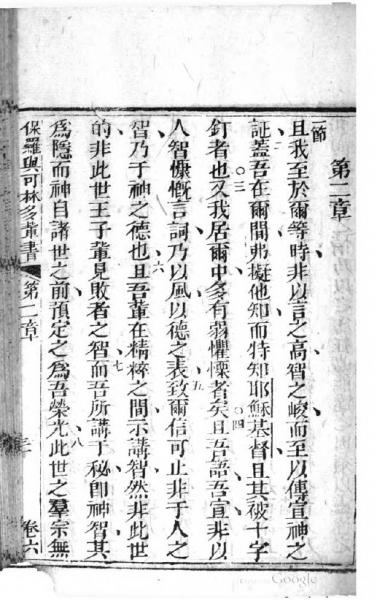 第二章
一節 且我至於爾等時非以言之高智之峻而至以傳宣神之
二 証蓋吾在爾間弗擬他知而特知耶穌基督且其被十字
三 釘者也又我居爾中多有弱懼慄者矣且吾語吾宣非以
四 人智慷慨言詞乃以風以德之表致爾信可止非于人之
五 智乃于神之德也且吾輩在精粹之間示講智然非此世
六 的非此世王子輩見敗者之智而吾所講于秘即神智其
七 為隱而神自諸世之前預定之為吾榮光此世之羣宗無
八
保羅與可林多輩書 第二章 二 卷六
Google